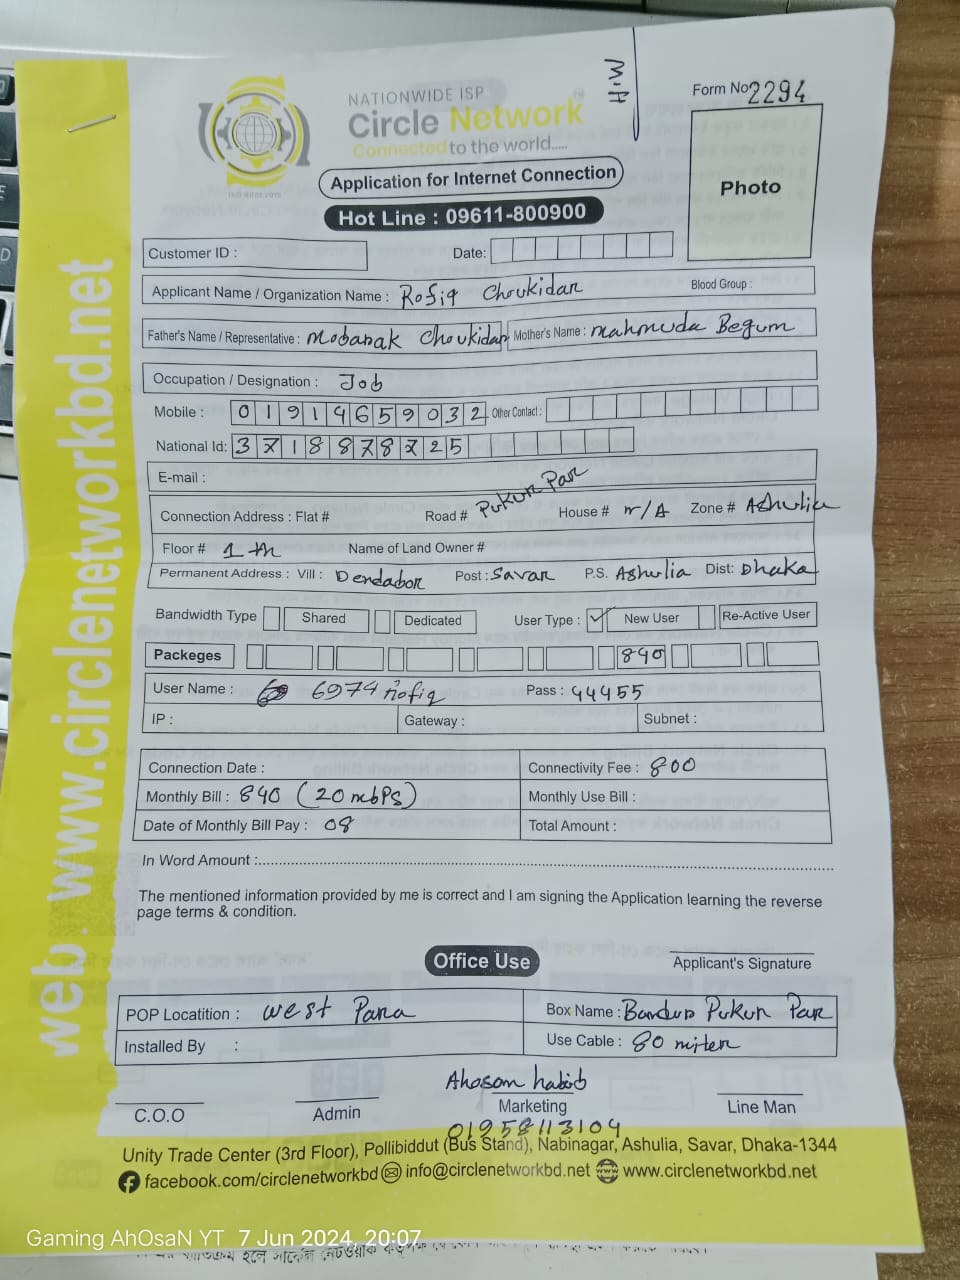 M-H
Form No 2294
NATIONWIDE ISP
Circle Network
Connected to the world.....
ISO 9001:2015
Photo
Application for Internet Connection
Hot Line : 09611-800900
Customer ID : Date:
Applicant Name / Organization Name : Rofiq Choukidar Blood Group :
Father's Name / Representative : Mobarak Choukidar Mother's Name : Mahmuda Begum
Occupation / Designation : Job
Mobile : 01914659032 Other Contact :
National Id: 3718878725
E-mail :
Connection Address : Flat # Road # Pukur Par House # n/A Zone # Ashulia
Floor # 1 th Name of Land Owner #
Permanent Address : Vill : Dendabor Post : Savar P.S. Ashulia Dist: Dhaka
Bandwidth Type Shared Dedicated User Type : ✓ New User Re-Active User
Packeges 840
User Name : 6974 rofiq Pass : 44455
IP : Gateway : Subnet :
Connection Date : Connectivity Fee : 800
Monthly Bill : 840 (20 mbps) Monthly Use Bill :
Date of Monthly Bill Pay : 08 Total Amount :
In Word Amount :
The mentioned information provided by me is correct and I am signing the Application learning the reverse
page terms & condition.
Office Use
Applicant's Signature
POP Locatition : West Para Box Name : Pukur Par
Installed By : Use Cable : 80 miter
Ahosan habib
C.O.O Admin Marketing Line Man
01958113104
Unity Trade Center (3rd Floor), Pollibiddut (Bus Stand), Nabinagar, Ashulia, Savar, Dhaka-1344
facebook.com/circlenetworkbd info@circlenetworkbd.net www.circlenetworkbd.net
web : www.circlenetworkbd.net
Gaming AhOsaN YT 7 Jun 2024, 20:07